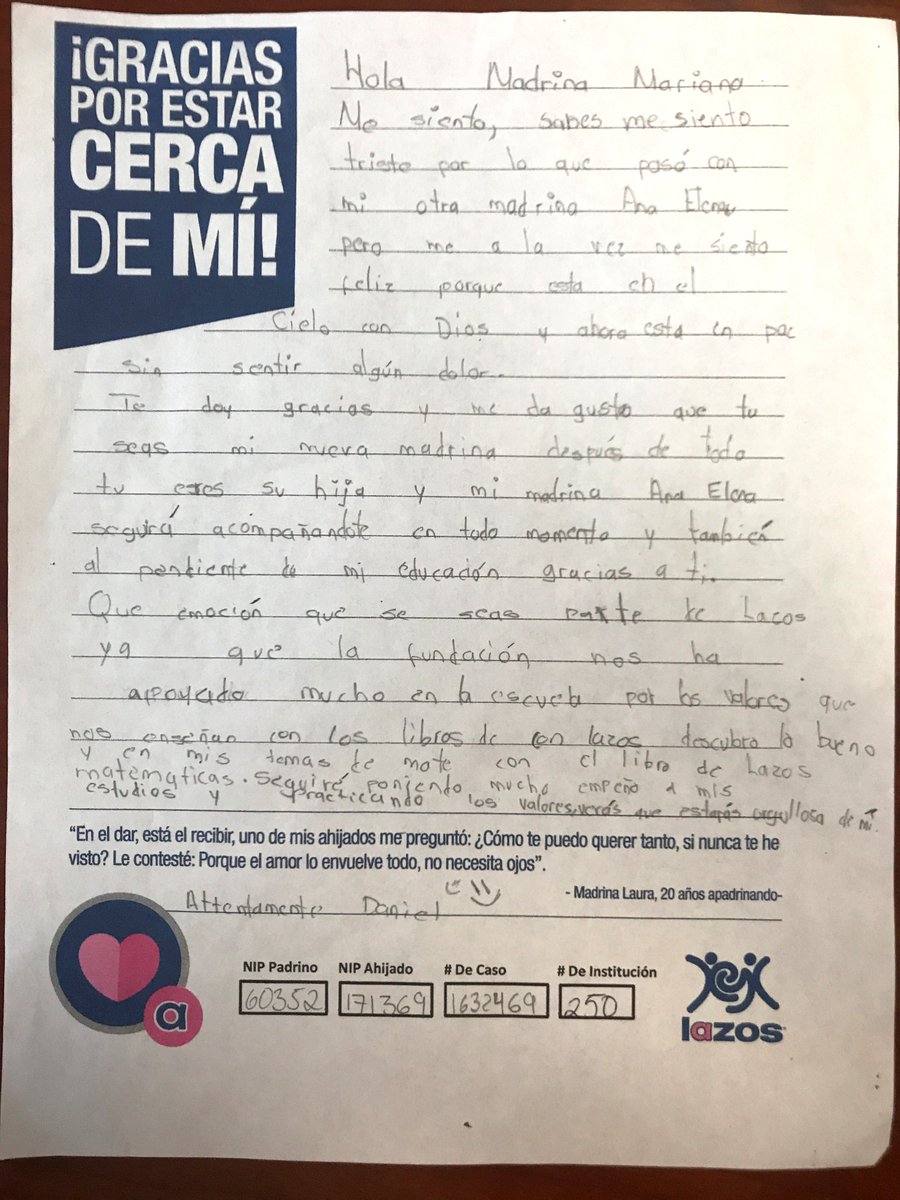 ¡GRACIAS
POR ESTAR
CERCA
DE MÍ!
Hola Madrina Mariana
Me siento, sabes me siento
triste por lo que pasó con
mi otra madrina Ana Elena
pero me a la vez me siento
feliz porque esta en el
Cielo con Dios y ahora esta en pac
sin sentir algún dolor.
Te doy gracias y me da gusto que tu
seas mi nueva madrina después de todo
tu eres su hija y mi madrina Ana Elena
seguirá acompañandote en todo momento y también
al pendiente de mi educación gracias a ti.
Que emoción que se seas parte de Lacos
ya que la fundación nos ha
apoyado mucho en la escuela por los valores que
nos enseñan con los libros de con lazos descubro lo bueno
y en mis temas de mate con el libro de Lazos
matematicas. Seguiré poniendo mucho empeño a mis
estudios y practicando los valores,verás que estarás orgullosa de mí.
“En el dar, está el recibir, uno de mis ahijados me preguntó: ¿Cómo te puedo querer tanto, si nunca te he
visto? Le contesté: Porque el amor lo envuelve todo, no necesita ojos”.
- Madrina Laura, 20 años apadrinando-
Attentamente Daniel
NIP Padrino NIP Ahijado # De Caso # De Institución
60352 171369 1632469 250
a
lazos